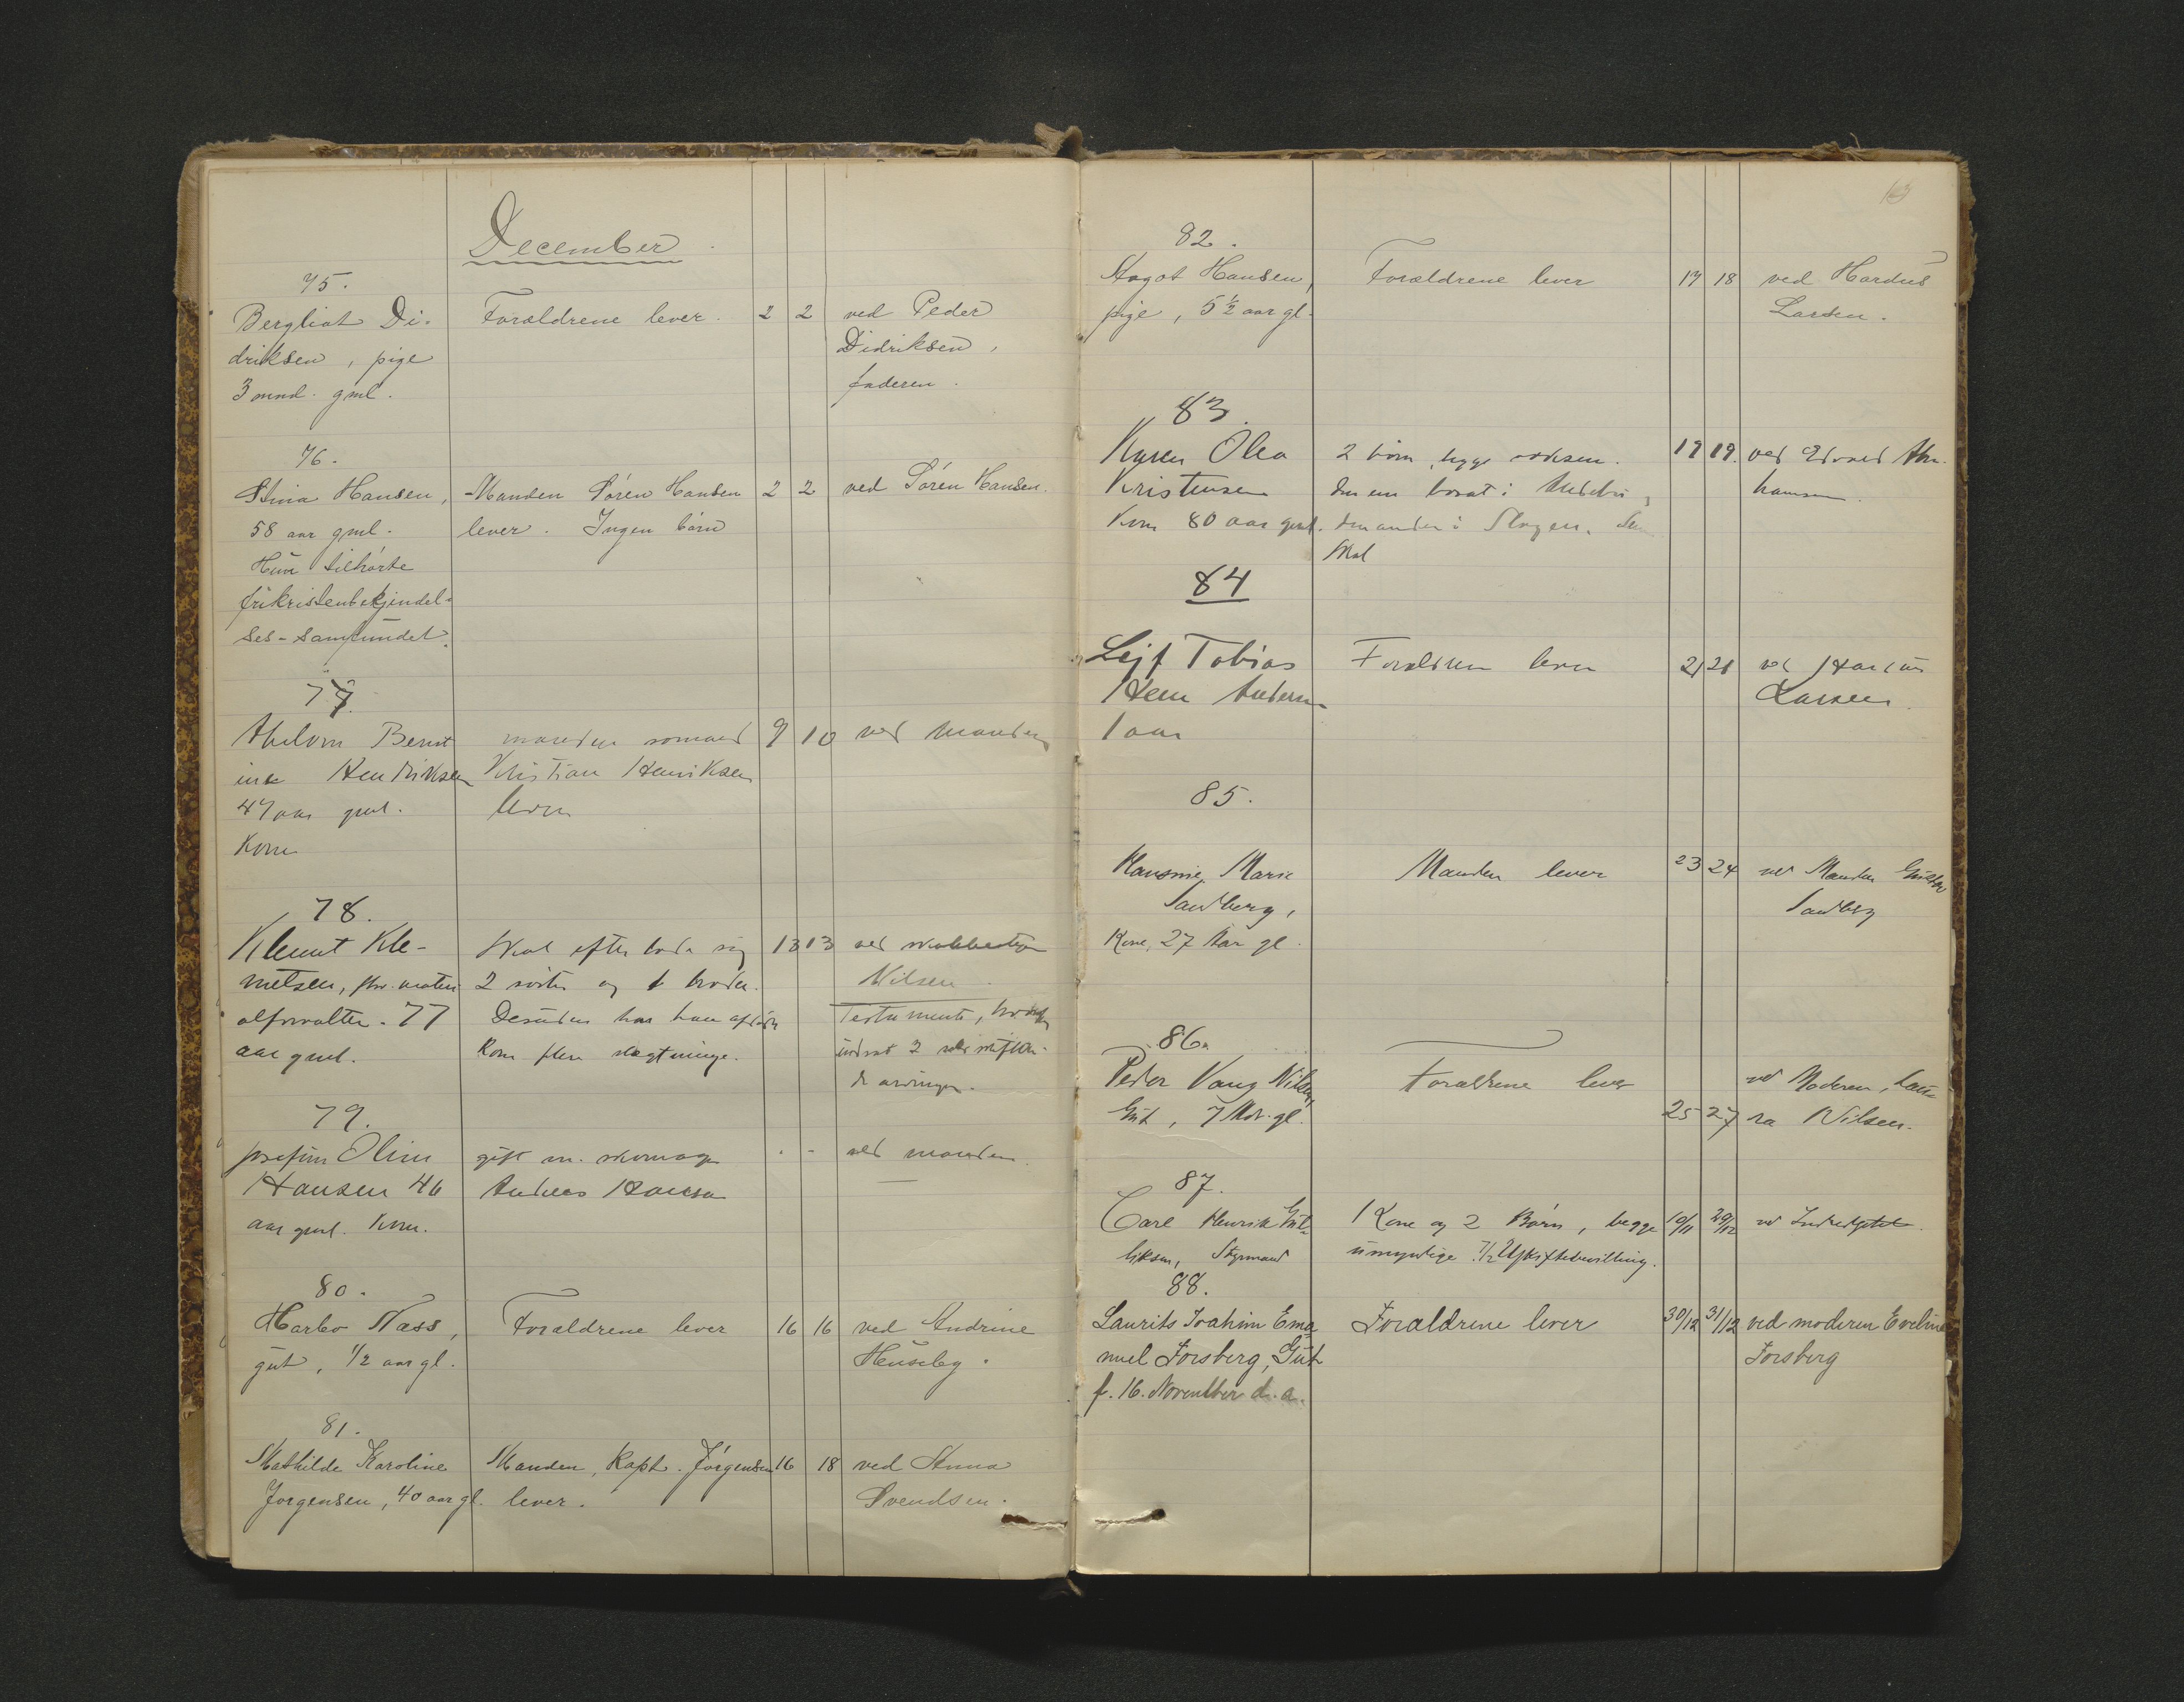 December
75.
Bergliot Di-
driksen, pige
3 mnd. gml.
Forældrene lever.
2 2
ved Peder
Didriksen,
faderen.
76.
Stina Hansen,
58 aar gml.
Hun tilhørte
frikristenbekjendel-
ses-samfundet.
Manden Søren Hansen
lever. Ingen børn
2 2
ved Søren Hansen.
77
Bernt
ine Hendriksen
47 aar gml.
Kone
manden sømand
Kristian Henriksen
lever
9 10
ved manden
78.
Klemet Kle-
metsen, fhv. materi
alforvalter. 77
aar gml.
Skal efterlade sig
2 søstre og 1 broder.
Desuden har han
flere slægtninge.
13 13
ved
Nilsen
Testamente,
79.
Josefine Oline
Hansen 46
aar gml. Kone.
gift m. skomager
Andreas Hansen
. -
ved manden.
80.
Harbo Nass,
gut, 1/2 aar gl.
Forældrene lever
16 16
ved Andrine
Huseby.
81.
Mathilde Karoline
Jørgensen, 40 aar gl.
Manden, Kapt. Jørgensen
lever.
16 18
ved Anna
Svendsen.
82.
Aagot Hansen,
pige, 5 1/2 aar gl.
Forældrene lever
17 18
ved Hardus
Larsen.
83.
Karen Olea
Kristensen
Kone 80 aar gml.
2 børn, begge voksen.
den ene bosat i Andebu,
den anden i Slagen.
Skal
19 19.
ved Edvard Abra
hamsen.
84
Lejf Tobias
Hem Andersen
1 aar
Forældrene lever
21 21
ved Hardus
Larsen.
85.
Hansine Marie
Sandberg,
Kone, 27 Aar gl.
Manden lever
23 24
ved Manden Gustav
Sandberg
86.
Peder Vang Nilsen,
Gut, 7 Md. gl.
Forældrene lever
25 27
ved Moderen, Lau-
ra Nilsen.
87.
Carl Henrik Gul-
liksen, Styrmand
1 Kone og 2 Børn, begge
umyndige. 7/2 Uskiftebevilling.
19/11 29/12
ved
88.
Laurits Joahim Ema
nuel Forsberg, Gut
f. 16. November d. a.
Forældrene lever
30/12 31/12
ved moderen Eveline
Forsberg